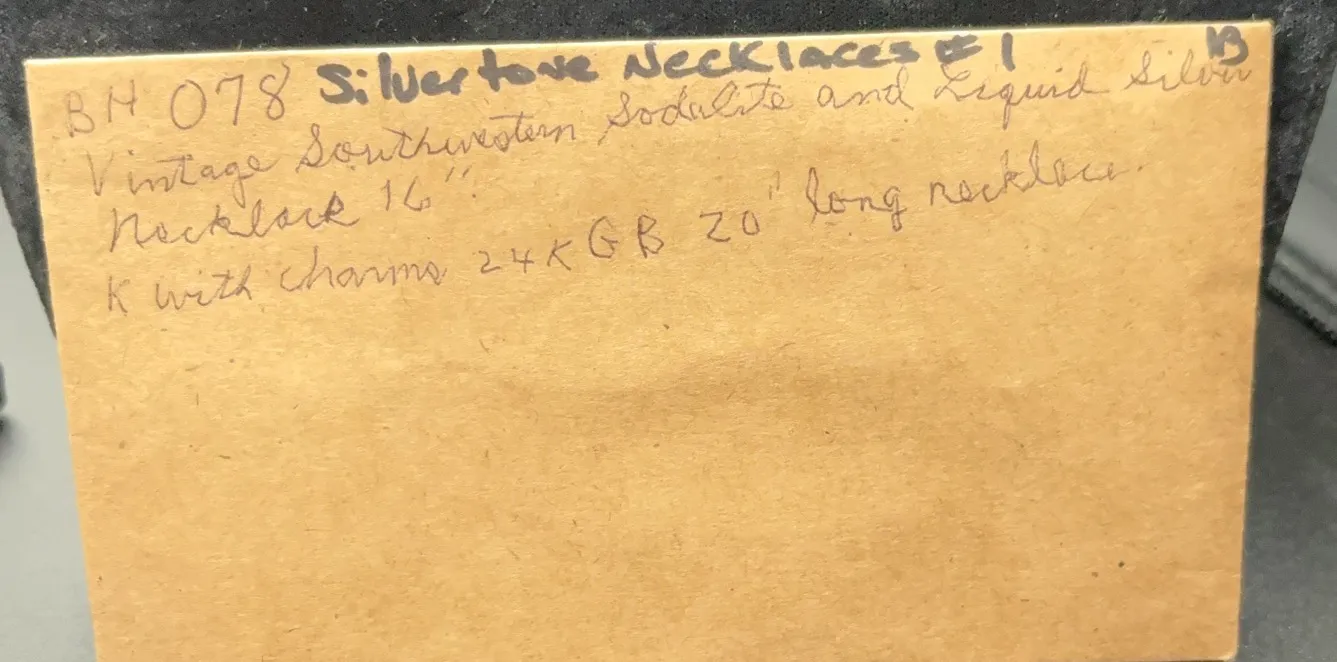 Silvertone Necklaces # 1 13
BH 078
Vintage Southwestern Sodalite and Liquid Silver
Necklack 16".
K with charms 24K GB 20" long necklace.